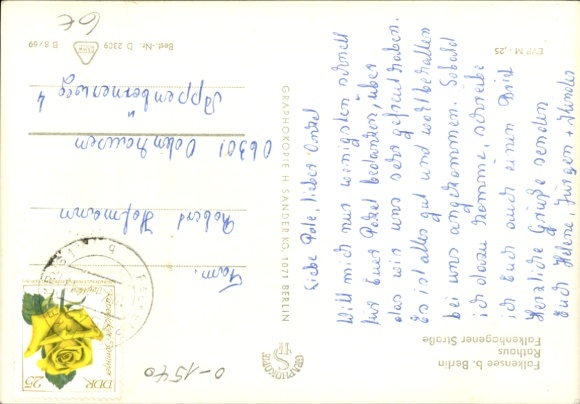 Falkensee b. Berlin
Rathaus
Falkenhagener Straße
Liebe Pate, lieber Onkel
Will mich nur wenigsten schnell
für Euer Paket bedanken, über
das wir uns sehr gefreut haben.
Es ist alles gut und wohlbehalten
bei uns angekommen. Sobald
ich dazu komme, schreibe
ich Euch auch einen Brief
Herzliche Grüße senden
Euch Helene, Jürgen + Kinder
EVP M -,25
GRAPHOKOPIE H. SANDER KG, 1071 BERLIN
GRAPHOKOPIE
HS
Best.-Nr. D 2309
B 8/69
6€
Fam.
Robert Hofmann
Odinhausen
ü
4
DDR
25
0-1540